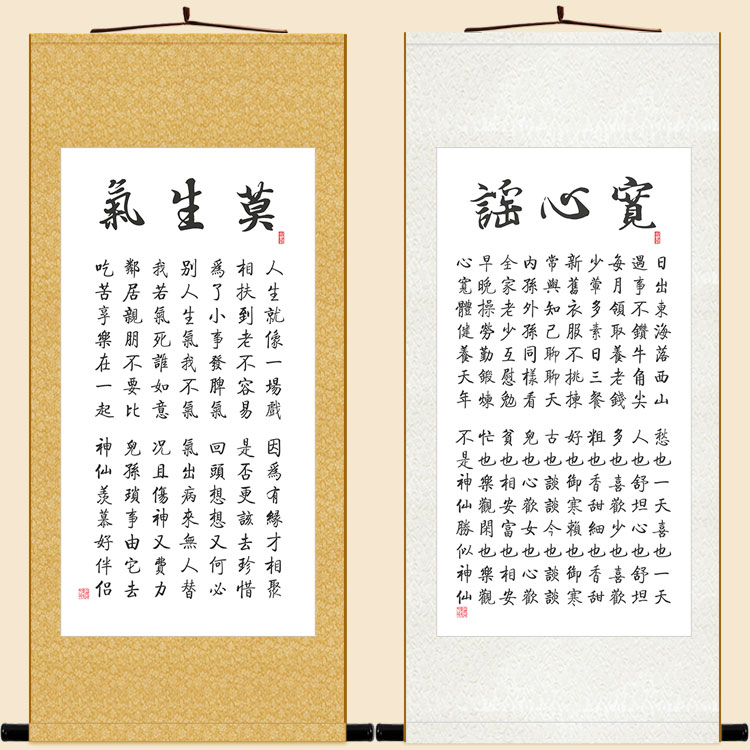 莫生氣
人生就像一場戲 因爲有緣才相聚
相扶到老不容易 是否更該去珍惜
爲了小事發脾氣 回頭想想又何必
別人生氣我不氣 氣出病來無人替
我若氣死誰如意 況且傷神又費力
鄰居親朋不要比 兒孫瑣事由它去
吃苦享樂在一起 神仙羨慕好伴侶
寬心謠
日出東海落西山 愁也一天喜也一天
遇事不鑽牛角尖 人也舒坦心也舒坦
每月領取養老錢 多也喜歡少也喜歡
少葷多素日三餐 粗也香甜細也香甜
新舊衣服不挑揀 好也御寒賴也御寒
常與知己聊聊天 古也談談今也談談
內孫外孫同樣看 兒也心歡女也心歡
全家老少互慰勉 貧也相安富也相安
早晚操勞勤鍛煉 忙也樂觀閑也樂觀
心寬體健養天年 不是神仙勝似神仙